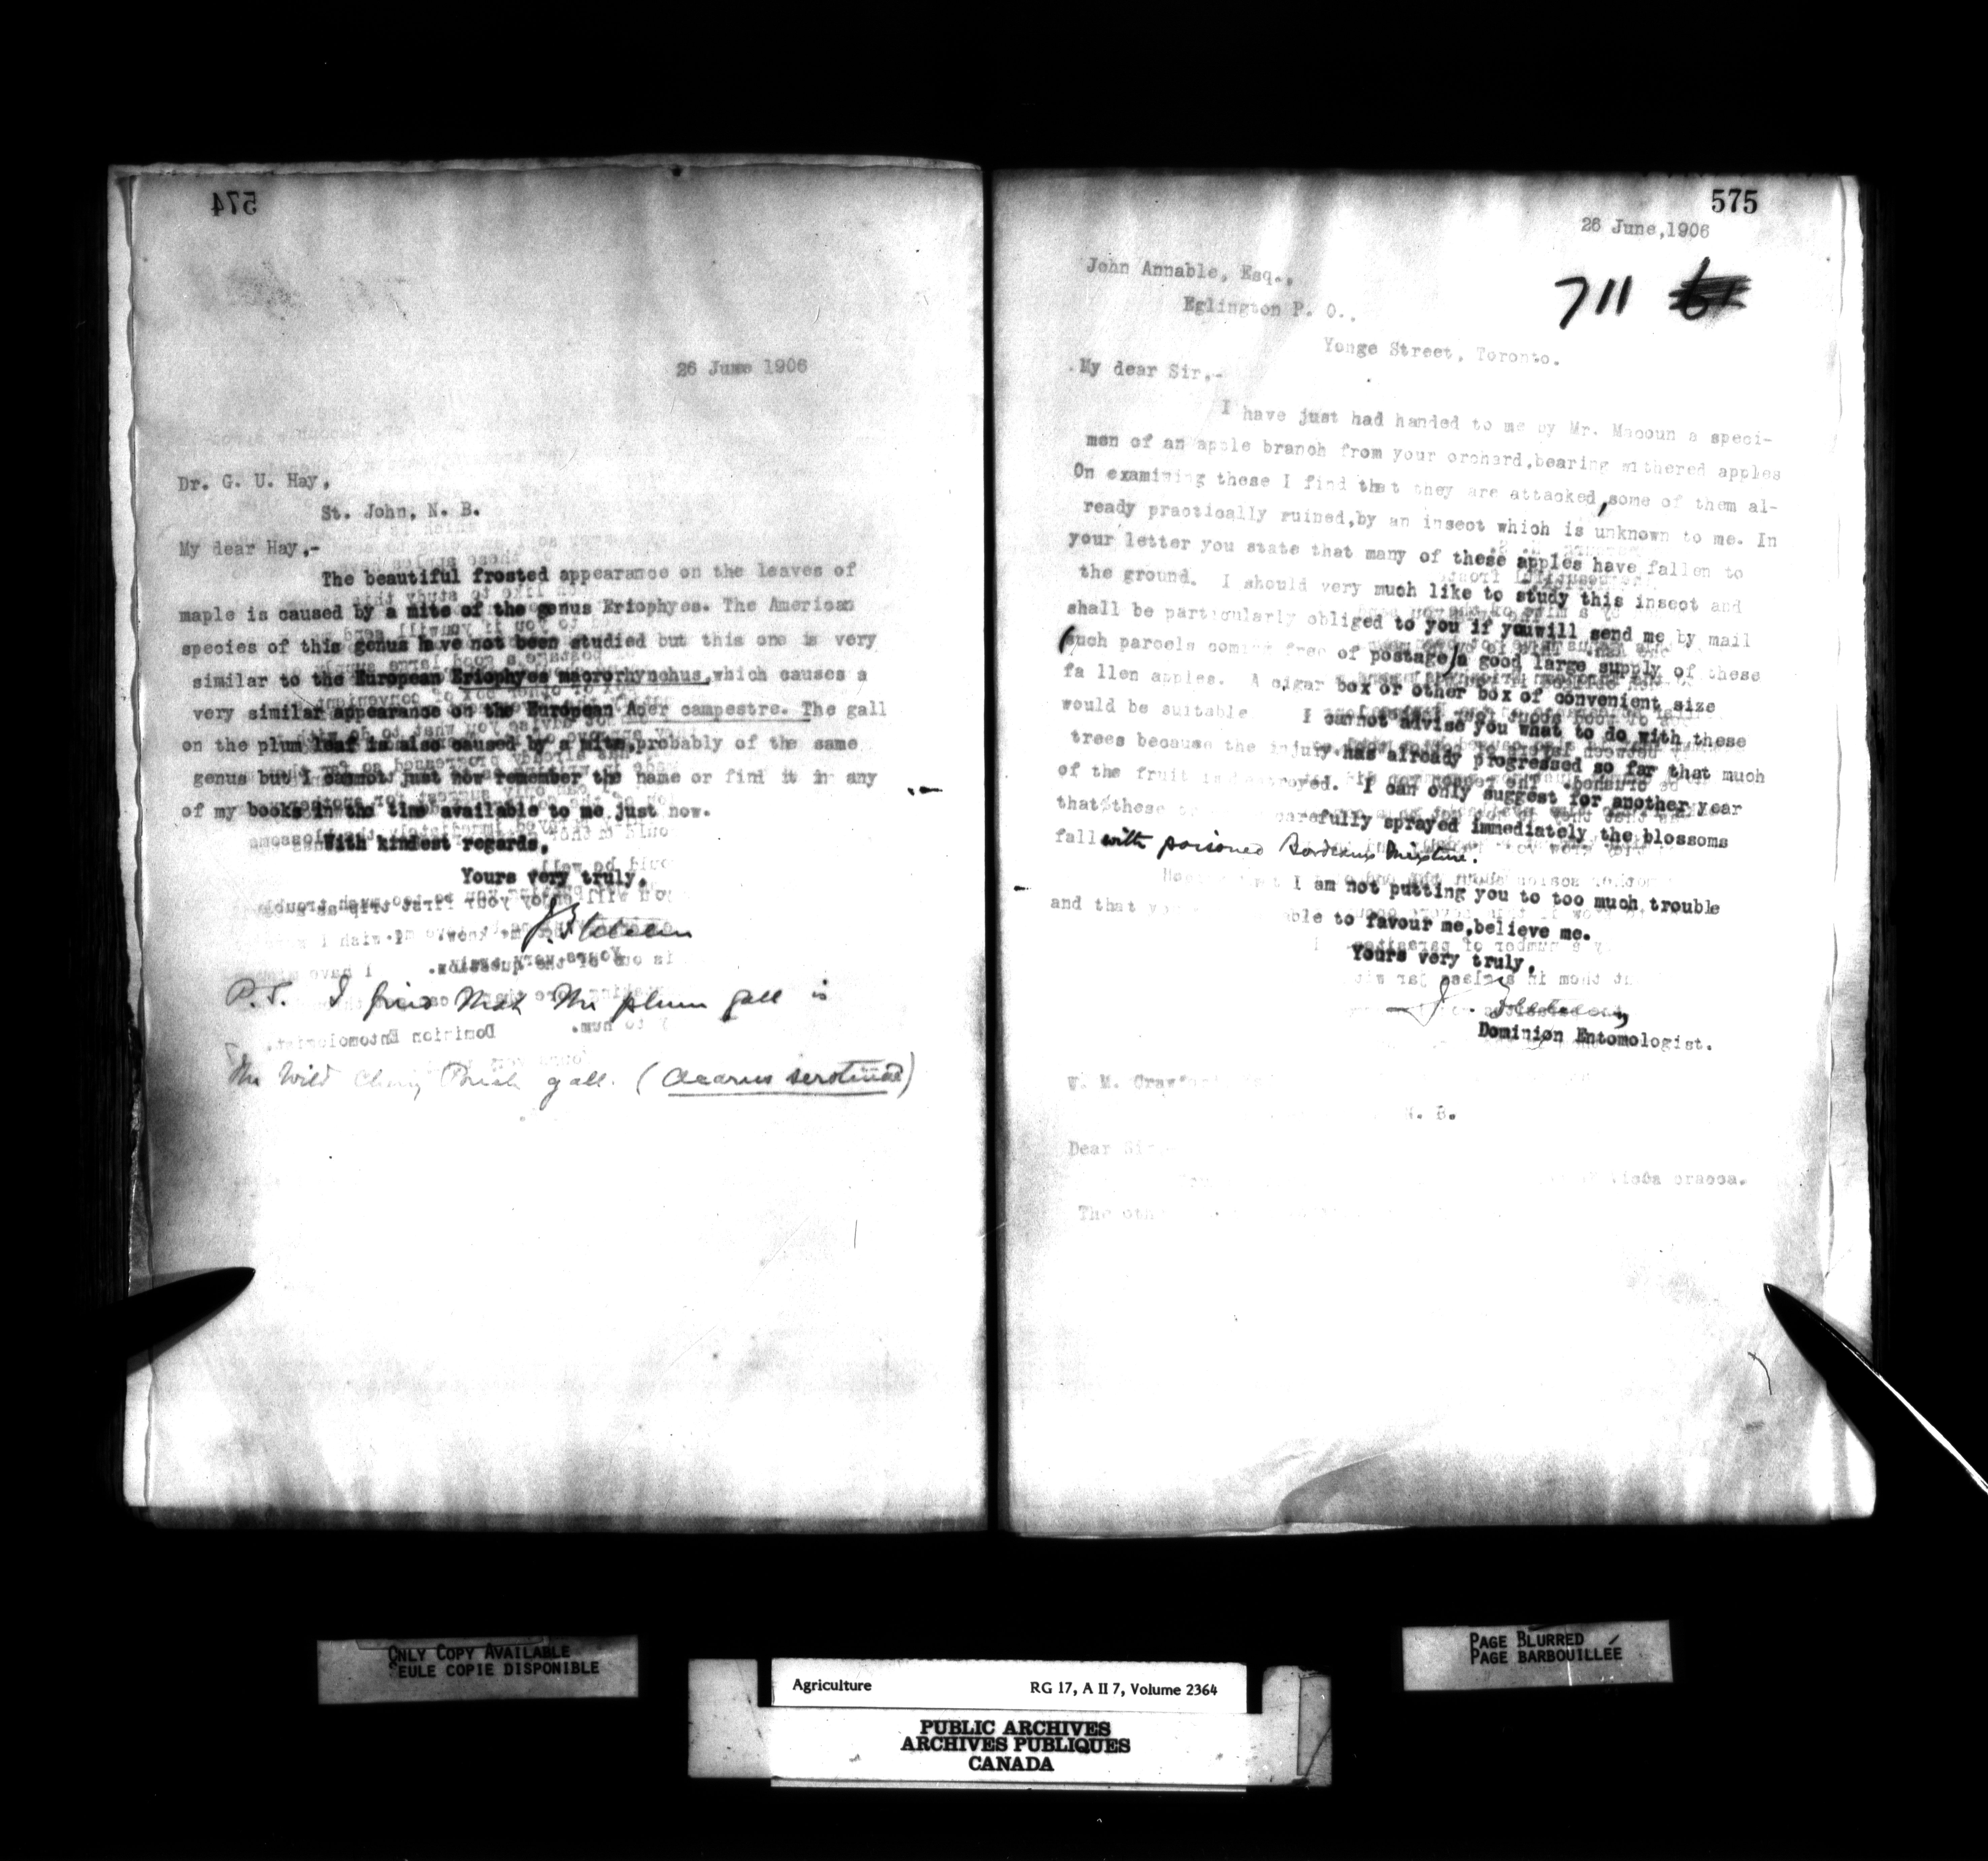 574
26 June 1906
Dr. G. U. Hay,
St. John, N. B.
My dear Hay,-
The beautiful frosted appearance on the leaves of
maple is caused by a mite of the genus Eriophyes. The American
species of this genus have not been studied but this one is very
similar to the European Eriophyes macrorhynchus, which causes a
very similar appearance on the European Acer campestre. The gall
on the plum leaf is also caused by a mite, probably of the same
genus but I cannot just now remember the name or find it in any
of my books in the time available to me just now.
With kindest regards,
Yours very truly,
P.S. I find that the plum gall is
the Wild Cherry Pouch gall. (Acarus serotinae)
575
26 June, 1906
711
John Annable, Esq.,
Eglington P. O.,
Yonge Street, Toronto.
My dear Sir,-
I have just had handed to me by Mr. Macoun a speci-
men of an apple branch from your orchard, bearing withered apples
On examining these I find that they are attacked, some of them al-
ready practically ruined, by an insect which is unknown to me. In
your letter you state that many of these apples have fallen to
the ground. I should very much like to study this insect and
shall be particularly obliged to you if youwill send me by mail
(such parcels coming free of postage) a good large supply of these
fa llen apples. A cigar box or other box of convenient size
would be suitable I cannot advise you what to do with these
trees because the injury has already progressed so far that much
of the fruit is destroyed. I can only suggest for another year
that these carefully sprayed immediately the blossoms
fall with poisoned Bordeaux Mixture.
I am not putting you to too much trouble
and that able to favour me, believe me.
Yours very truly,
Dominion Entomologist.
W. M. Craw
N. B.
Dear Sir
Vicia cracca.
The oth
ONLY COPY AVAILABLE
SEULE COPIE DISPONIBLE
PAGE BLURRED
PAGE BARBOUILLÉE
Agriculture RG 17, A II 7, Volume 2364
PUBLIC ARCHIVES
ARCHIVES PUBLIQUES
CANADA